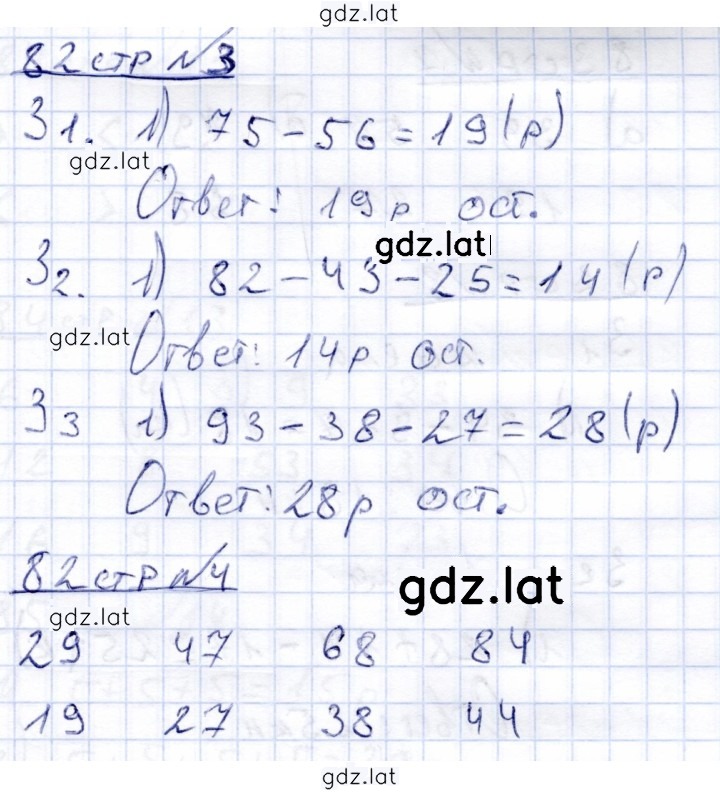 gdz.lat
82 стр №3
З1. 1) 75-56=19(р)
gdz.lat
Ответ: 19р ост.
gdz.lat
З2. 1) 82-43-25=14(р)
gdz.lat
Ответ: 14р ост.
З3 1) 93-38-27=28(р)
Ответ: 28р ост.
82 стр №4
gdz.lat
gdz.lat
29 47 68 84
19 27 38 44
gdz.lat